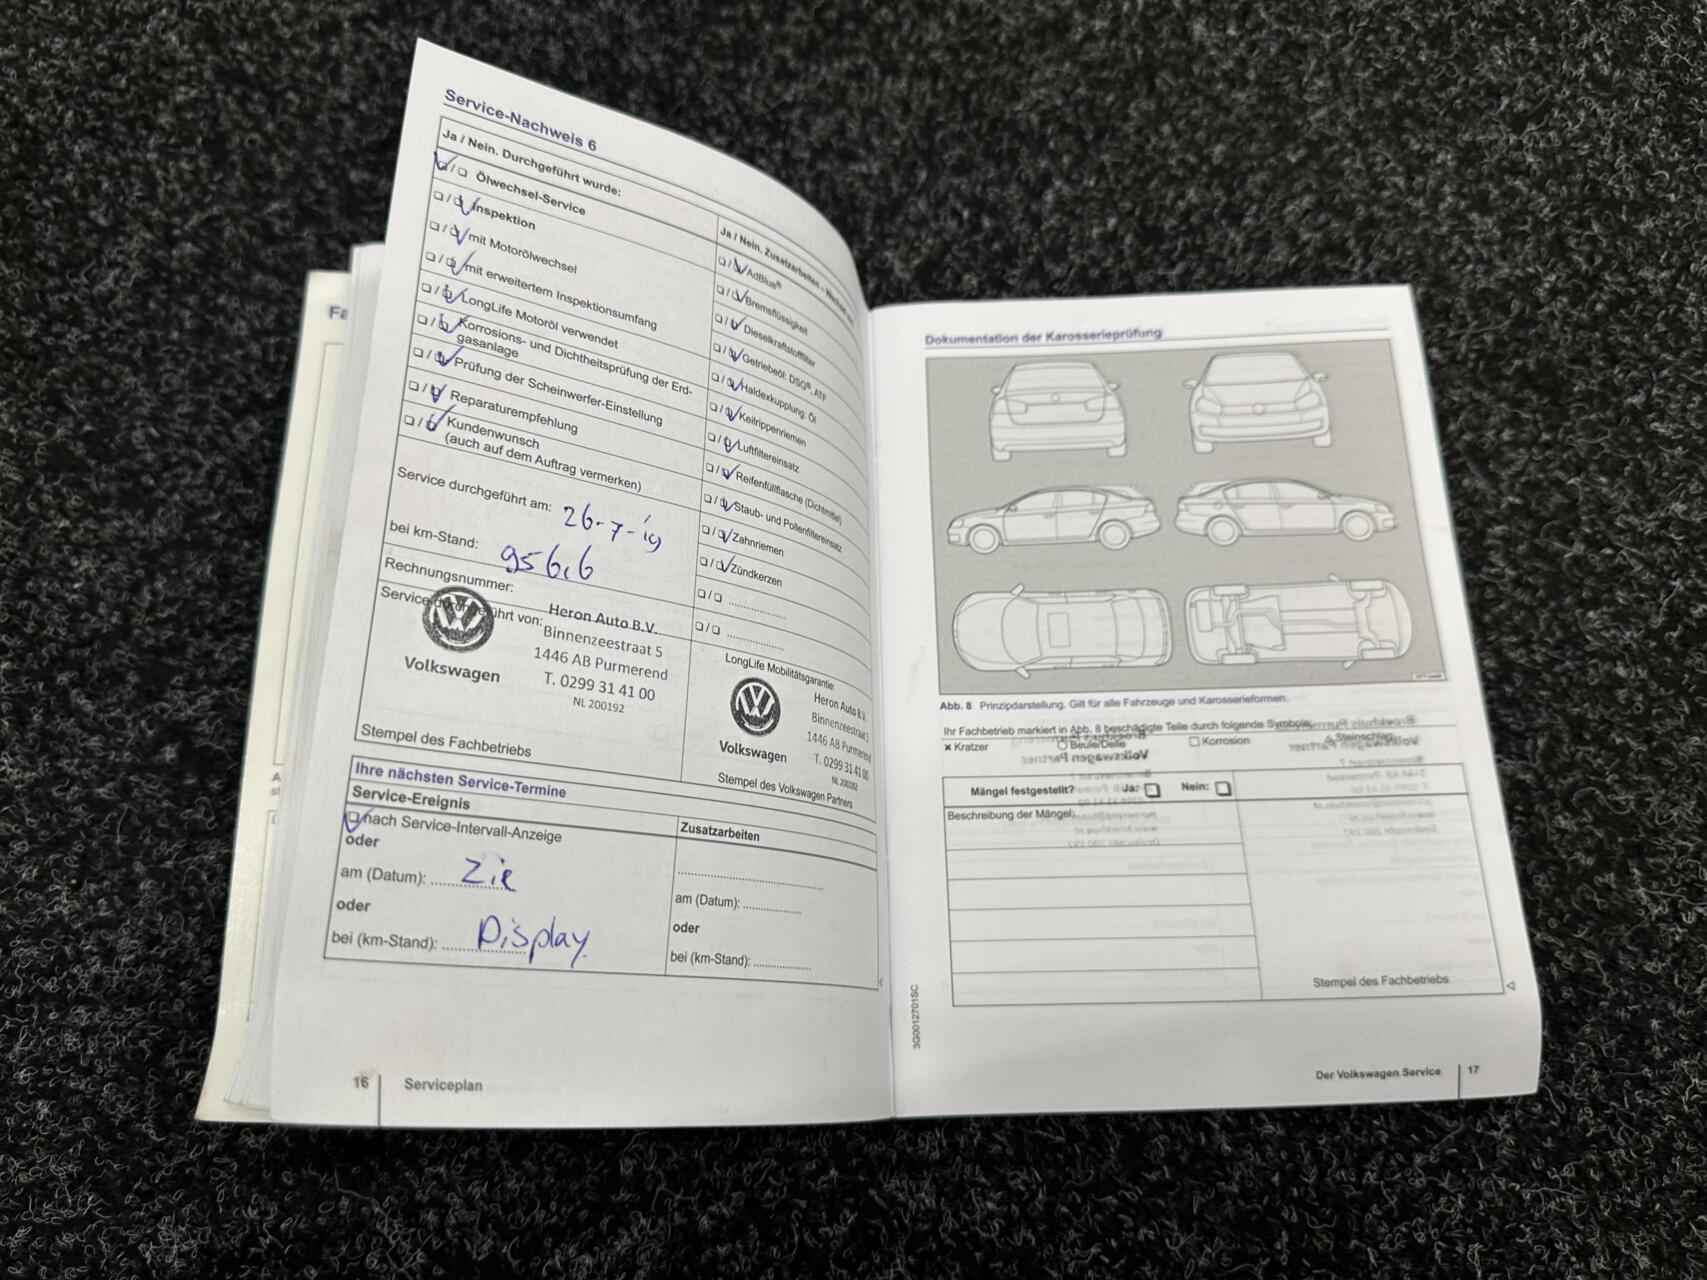 Service-Nachweis 6
Ja / Nein. Durchgeführt wurde:
Ölwechsel-Service
Inspektion
mit Motorölwechsel
mit erweitertem Inspektionsumfang
LongLife Motoröl verwendet
Korrosions- und Dichtheitsprüfung der Erd-
gasanlage
Prüfung der Scheinwerfer-Einstellung
Reparaturempfehlung
Kundenwunsch
(auch auf dem Auftrag vermerken)
Service durchgeführt am: 26-7-19
bei km-Stand:
Rechnungsnummer:
Service durchgeführt von:
Volkswagen
Heron Auto B.V.
Binnenzeestraat 5
1446 AB Purmerend
T. 0299 31 41 00
NL 200192
Stempel des Fachbetriebs
Ja / Nein. Zusatzarbeiten -
AdBlue®
Bremsflüssigkeit
Dieselkraftstofffilter
Getriebeöl: DSG®, ATF
Haldexkupplung: Öl
Keilrippenriemen
Luftfiltereinsatz
Reifenfüllflasche (Dichtmittel)
Staub- und Pollenfiltereinsatz
Zahnriemen
Zündkerzen
LongLife Mobilitätsgarantie:
Volkswagen
Heron Auto B.V.
Binnenzeestraat 5
1446 AB Purmerend
T. 0299 31 41 00
NL 200192
Stempel des Volkswagen Partners
Ihre nächsten Service-Termine
Service-Ereignis
nach Service-Intervall-Anzeige
oder
am (Datum): Zie
oder
bei (km-Stand): Display
Zusatzarbeiten
am (Datum):
oder
bei (km-Stand):
16
Serviceplan
Dokumentation der Karosserieprüfung
Abb. 8 Prinzipdarstellung. Gilt für alle Fahrzeuge und Karosserieformen.
Ihr Fachbetrieb markiert in Abb. 8 beschädigte Teile durch folgende Symbole:
Kratzer
Beule/Delle
Korrosion
Steinschlag
Mängel festgestellt? Ja: Nein:
Beschreibung der Mängel:
Stempel des Fachbetriebs
3G0012701SC
Der Volkswagen Service
17